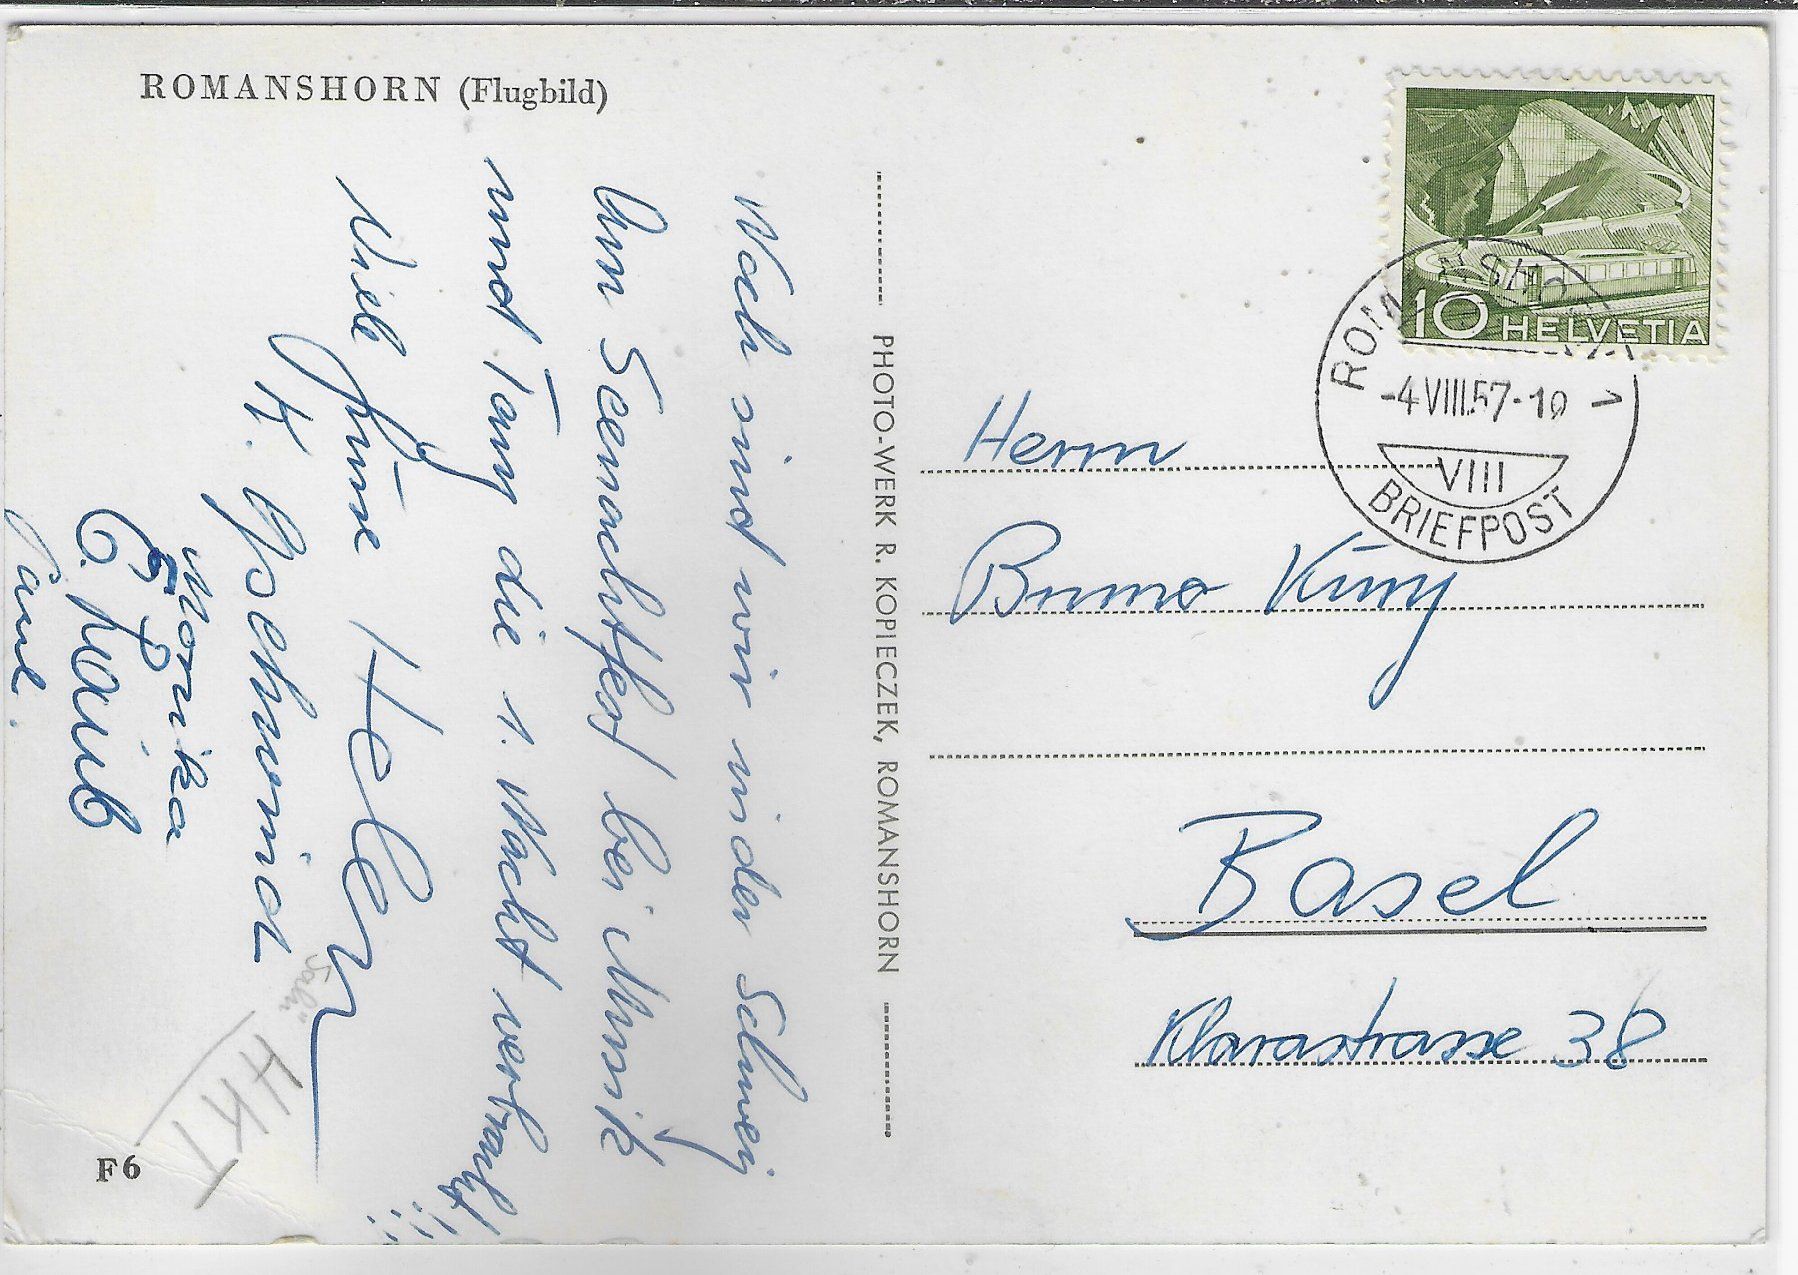 ROMANSHORN (Flugbild)
Noch sind wir in der Schweiz
Am Seenachtfest bei Musik
und Tanz die 1. Nacht verbracht!!!
Viele Grüsse
K. Gschwind
Monika
PHOTO-WERK R. KOPIECZEK, ROMANSHORN
10 HELVETIA
ROMANSHORN 1
-4.VIII.57-10
VIII
BRIEFPOST
Herrn
Bruno Küng
Basel
Klarastrasse 38
HKT
F6